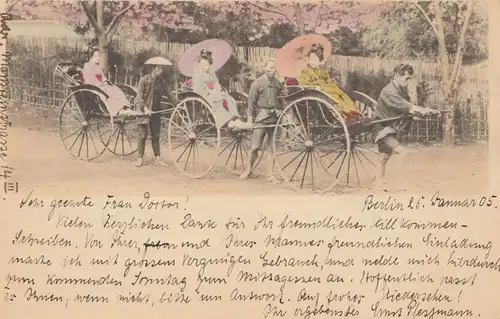 Berlin 25. Januar 05.
Sehr geehrte Frau Doctor!
Vielen herzlichen Dank für Ihr freundliches Willkommen-
Schreiben. Von Ihrer, und Ihres Mannes freundlichen Einladung
mache ich mit grossem Vergnügen Gebrauch, und melde mich hierdurch
zum kommenden Sonntag zum Mittagessen an. Hoffentlich passt
es Ihnen, wenn nicht, bitte um Antwort. Auf frohes Wiedersehen!
Ihr ergebenster Ernst